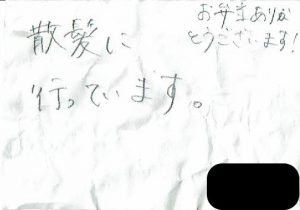 散髪に
行っています。
お弁当ありが
とうございます!